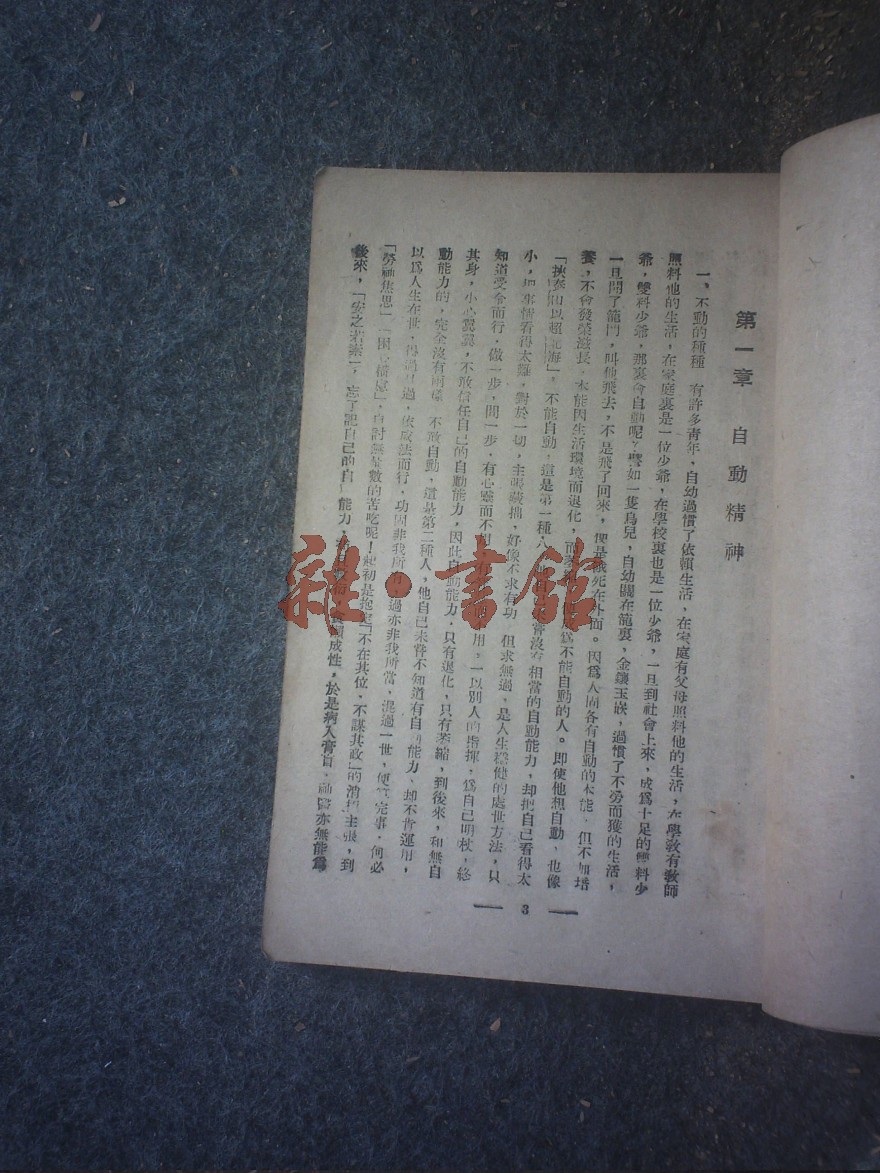 第一章　自動精神
一、不動的種種　有許多靑年，自幼過慣了依賴生活，在家庭有父母照料他的生活，在學敎有敎師
照料他的生活，在家庭裏是一位少爺，在學校裏也是一位少爺，一旦到社會上來，成爲十足的雙料少
爺，雙料少爺，那裏會自動呢？譬如一隻鳥兒，自幼關在籠裏，金鑲玉嵌，過慣了不勞而獲的生活，
一旦開了籠門，叫他飛去，不是飛了回來，便是餓死在外面。因爲人固各有自動的本能，但不加培
養，不會發榮滋長，本能因生活環境而退化，而爲不能自動的人。卽使他想自動，也像
「挾泰山以超北海」，不能自動，這是第一種人沒有相當的自動能力，却把自己看得太
小，把事情看得太難，對於一切，主張藏拙，好像不求有功，但求無過，是人生穩健的處世方法，只
知道受命而行，做一步，問一步，有心靈而不用，一以別人的指揮，爲自己明杖，終
其身，小心翼翼，不敢信任自己的自動能力，因此自動能力，只有退化，只有萎縮，到後來，和無自
動能力的，完全沒有兩樣　不敢自動，這是第二種人，他自己未嘗不知道有自動能力，却不肯運用，
以爲人生在世，得過且過，依成法而行，功固非我所過亦非我所當，混過一世，便算完事，何必
「勞神焦思」，「困心橫慮」，自討無量數的苦吃呢！起初是抱定「不在其位，不謀其政」的消極主張，到
後來，「安之若素」，忘了記自己的自能力，成性，於是病入膏肓，神醫亦無能爲
3
雜·書館